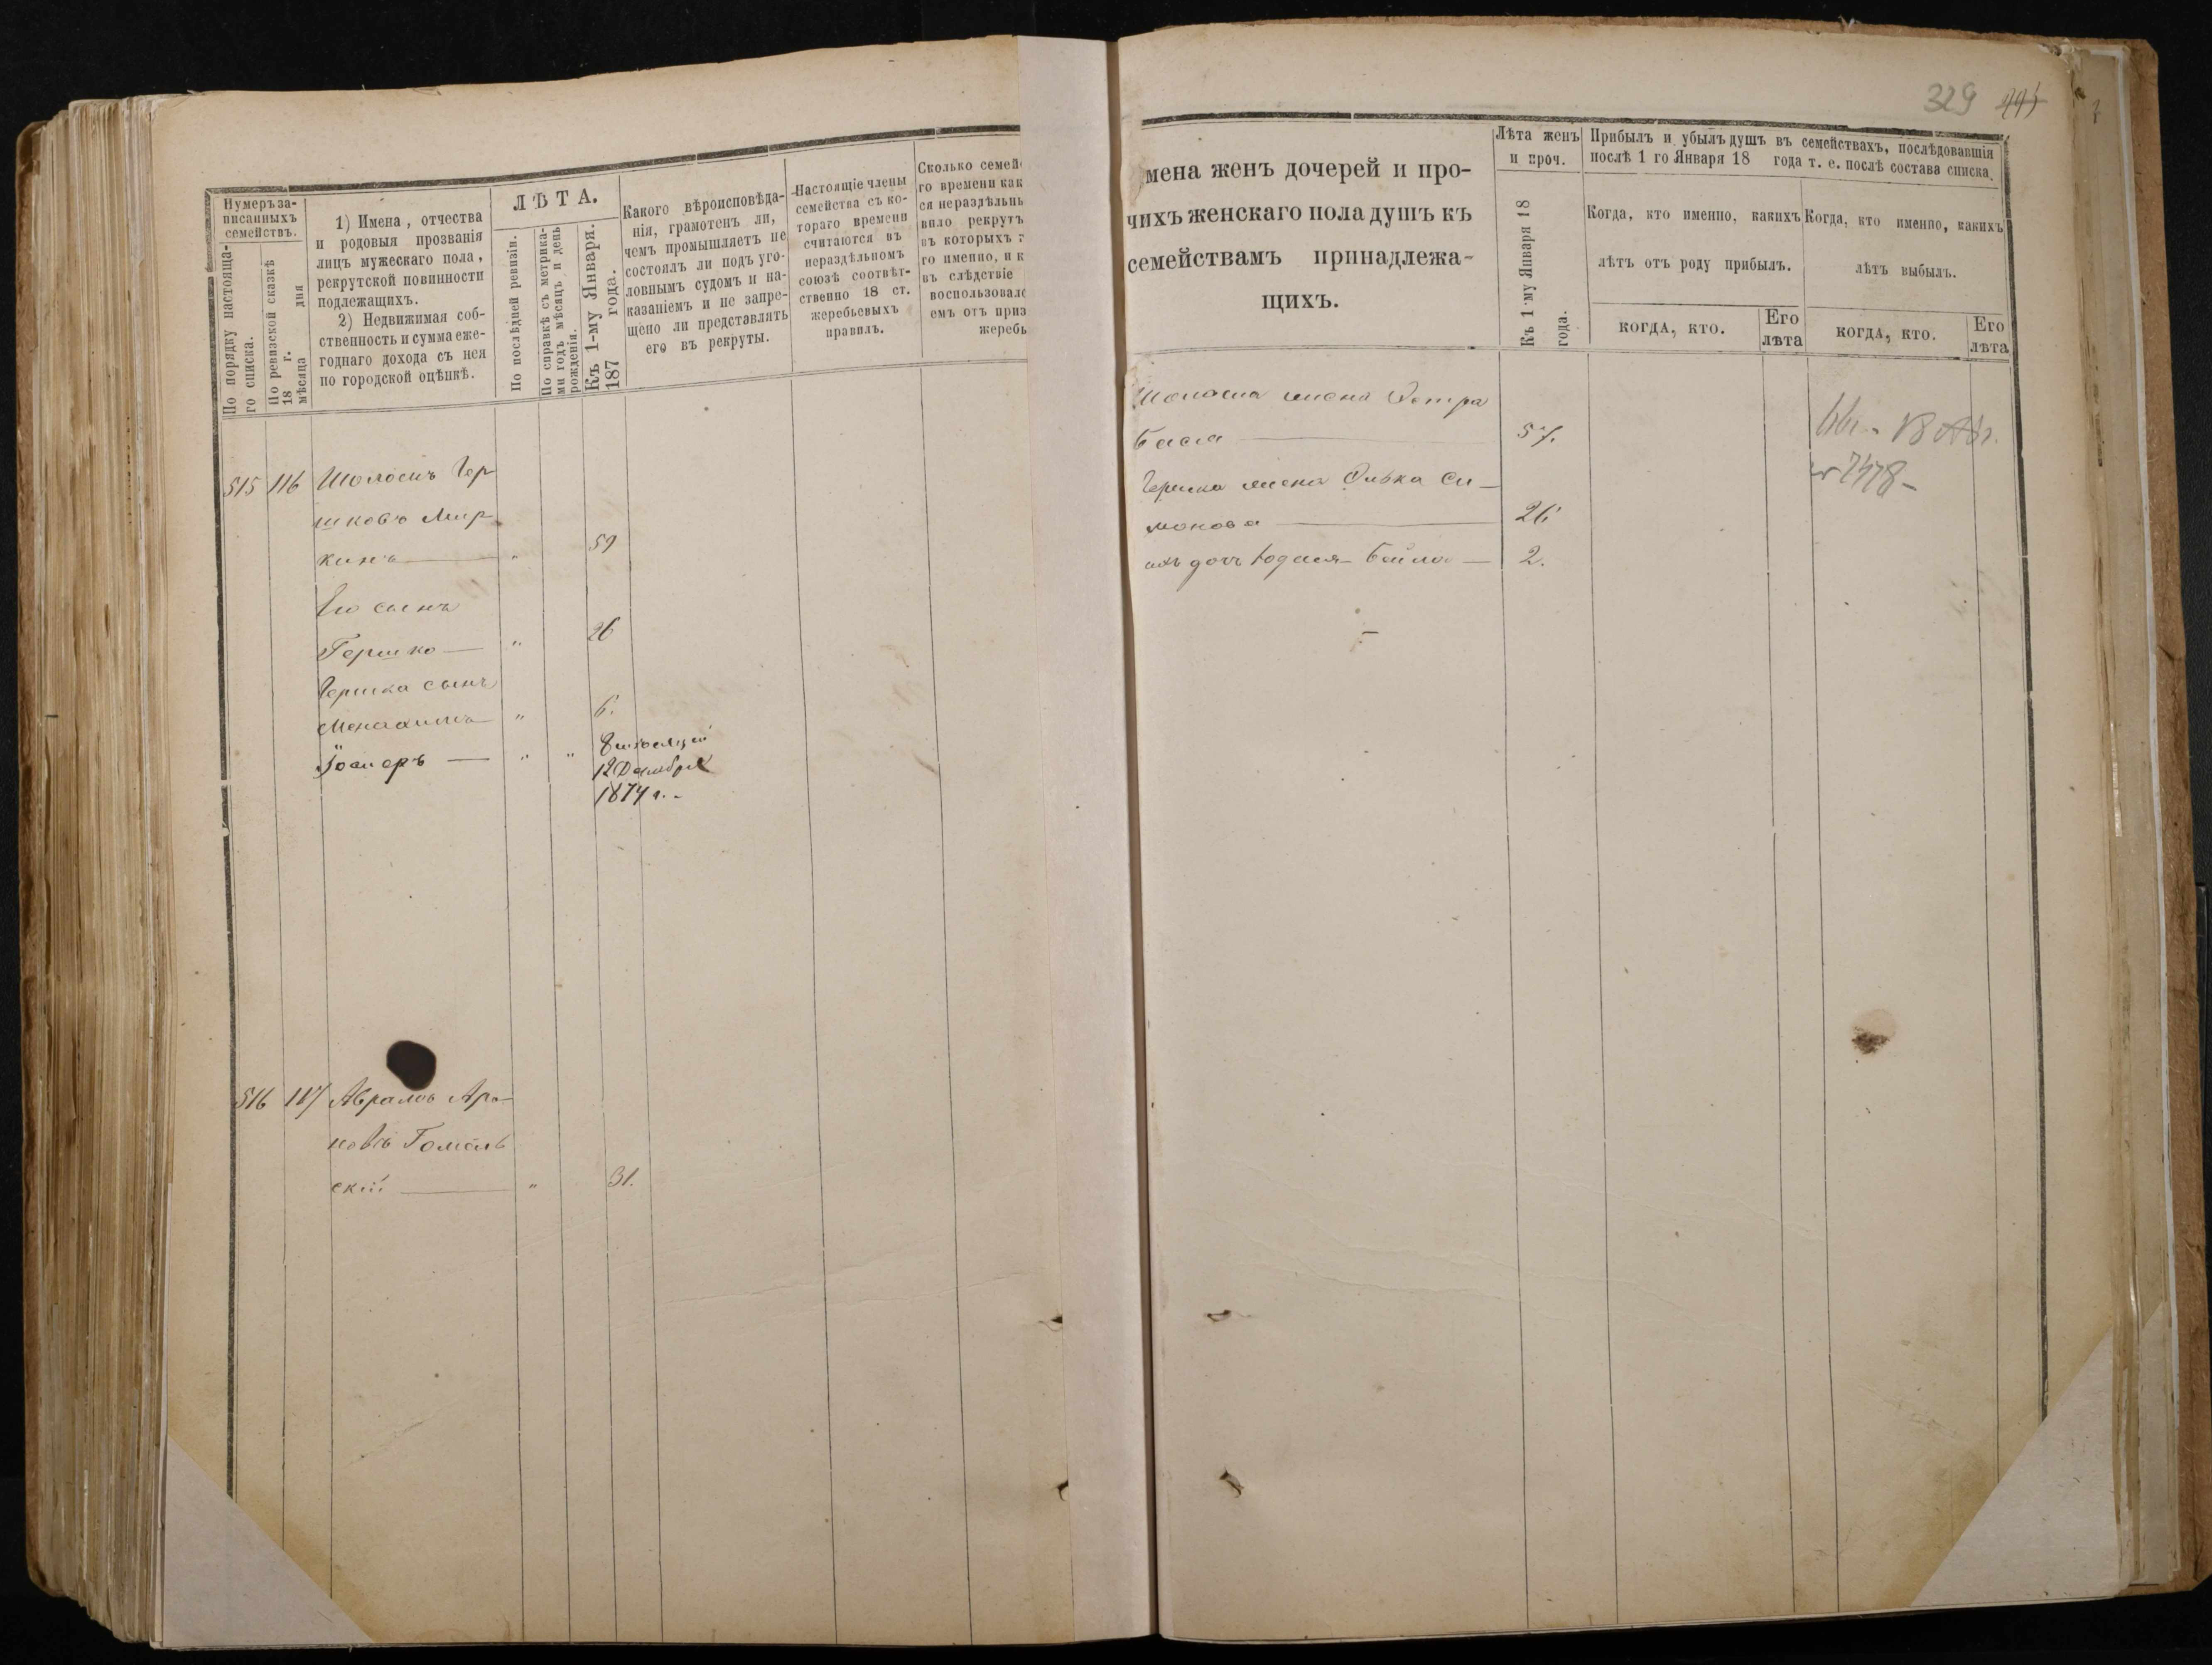 Нумеръ за-
писанныхъ
семействъ.
По порядку настояща-
го списка.
По ревизской сказкѣ
18 г.
мѣсяца дня
1) Имена, отчества
и родовыя прозванія
лицъ мужескаго пола,
рекрутской повинности
подлежащихъ.
2) Недвижимая соб-
ственность и сумма еже-
годнаго дохода съ нея
по городской оцѣнкѣ.
ЛѢТА.
По послѣдней ревизіи.
По справкѣ съ метрика-
ми годъ мѣсяцъ и день
рожденія.
Къ 1-му Января.
187 года.
Какого вѣроисповѣда-
нія, грамотенъ ли,
чемъ промышляетъ не
состоялъ ли подъ уго-
ловнымъ судомъ и на-
казаніемъ и не запре-
щено ли представлять
его въ рекруты.
Настоящіе члены
семейства съ ко-
тораго времени
считаются въ
нераздѣльномъ
союзѣ соотвѣт-
ственно 18 ст.
жеребьевыхъ
правилъ.
Сколько семей
го времени как
ся нераздѣльн
вило рекрутъ
въ которыхъ г
го именно, и к
въ слѣдствіе
воспользовал
емъ отъ приз
жеребь
515 116 Шоломъ Гер
шковъ Мир
кинъ — " 59
Его сынъ
Гершко — " 26
Гершка сынъ
Менахимъ " 6.
— " "
12 Декабря
1874 г.
516 117 Абрамъ Аро-
новъ Гомель
скій — " 31.
329
мена женъ дочерей и про-
чихъ женскаго пола душъ къ
семействамъ принадлежа-
щихъ.
Лѣта женъ
и проч.
Къ 1-му Января 18
года.
Прибылъ и убылъ душъ въ семействахъ, послѣдовавшія
послѣ 1 го Января 18 года т. е. послѣ состава списка.
Когда, кто именно, какихъ
лѣтъ отъ роду прибылъ.
когда, кто.
Его
лѣта
Когда, кто именно, какихъ
лѣтъ выбылъ.
когда, кто.
Его
лѣта
Шолома жена
Бася — 57.
Гершка жена Си-
монова — 26
ихъ дочь Бейла — 2.